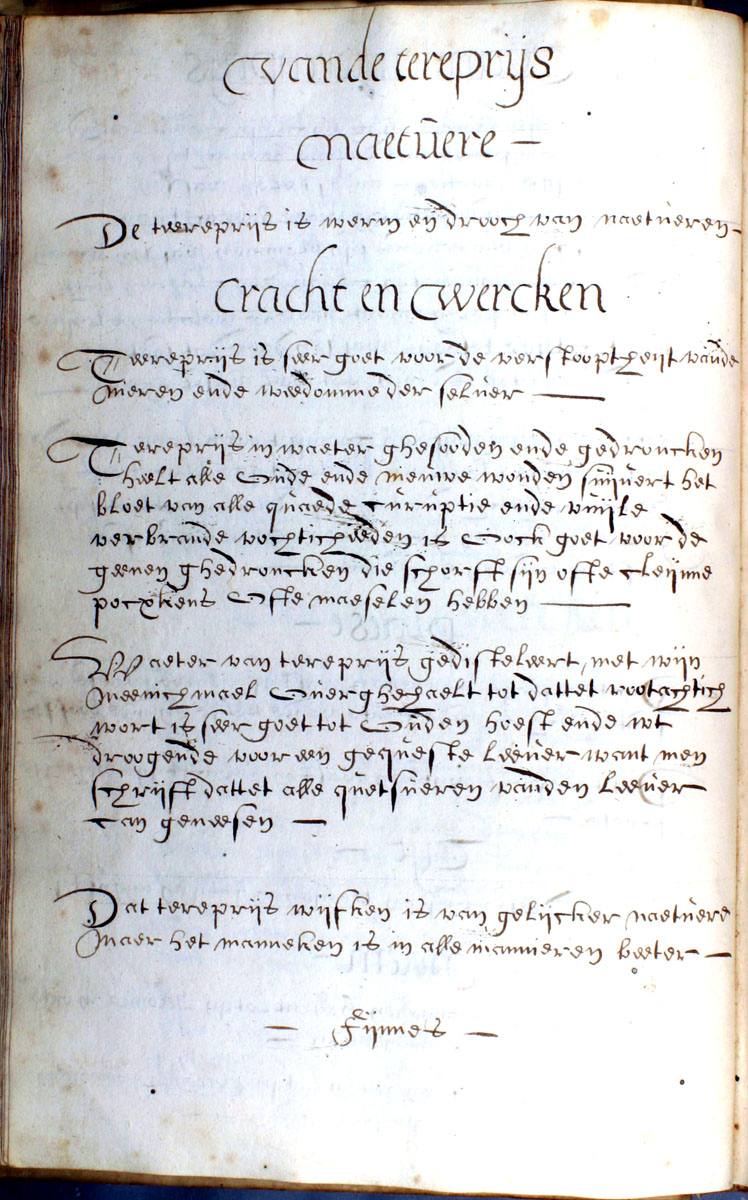 vande tereprijs
naetuere —
De teereprijs is werm en drooch van naetueren —
Cracht en Wercken
Teereprijs is seer goet voor de verstooptheijt vande
nieren ende weedomme der selver —
Tereprijs in waeter ghesooden ende gedroncken
heelt alle Oude ende nieuwe wonden suijvert het
bloet van alle quaede Curuptie ende vuijle
verbrande vochticheeden is Oock goet voor de
geenen ghedroncken die schorft sijn ofte cleijnne
pocxkens Ofte maeselen hebben —
Waeter van tereprijs gedisteleert, met wijn
meenichmael Overghehaelt tot dattet rootachtich
wort is seer goet tot Ouden hoest ende wt
droogende voor een gequeste Leever want men
schrijft dattet alle quetsueren vanden Leever
can geneesen —
Dat tereprijs wijfken is van gelijcker naetuere
Maer het manneken is in alle mannieren beeter —
— Fijnnes —